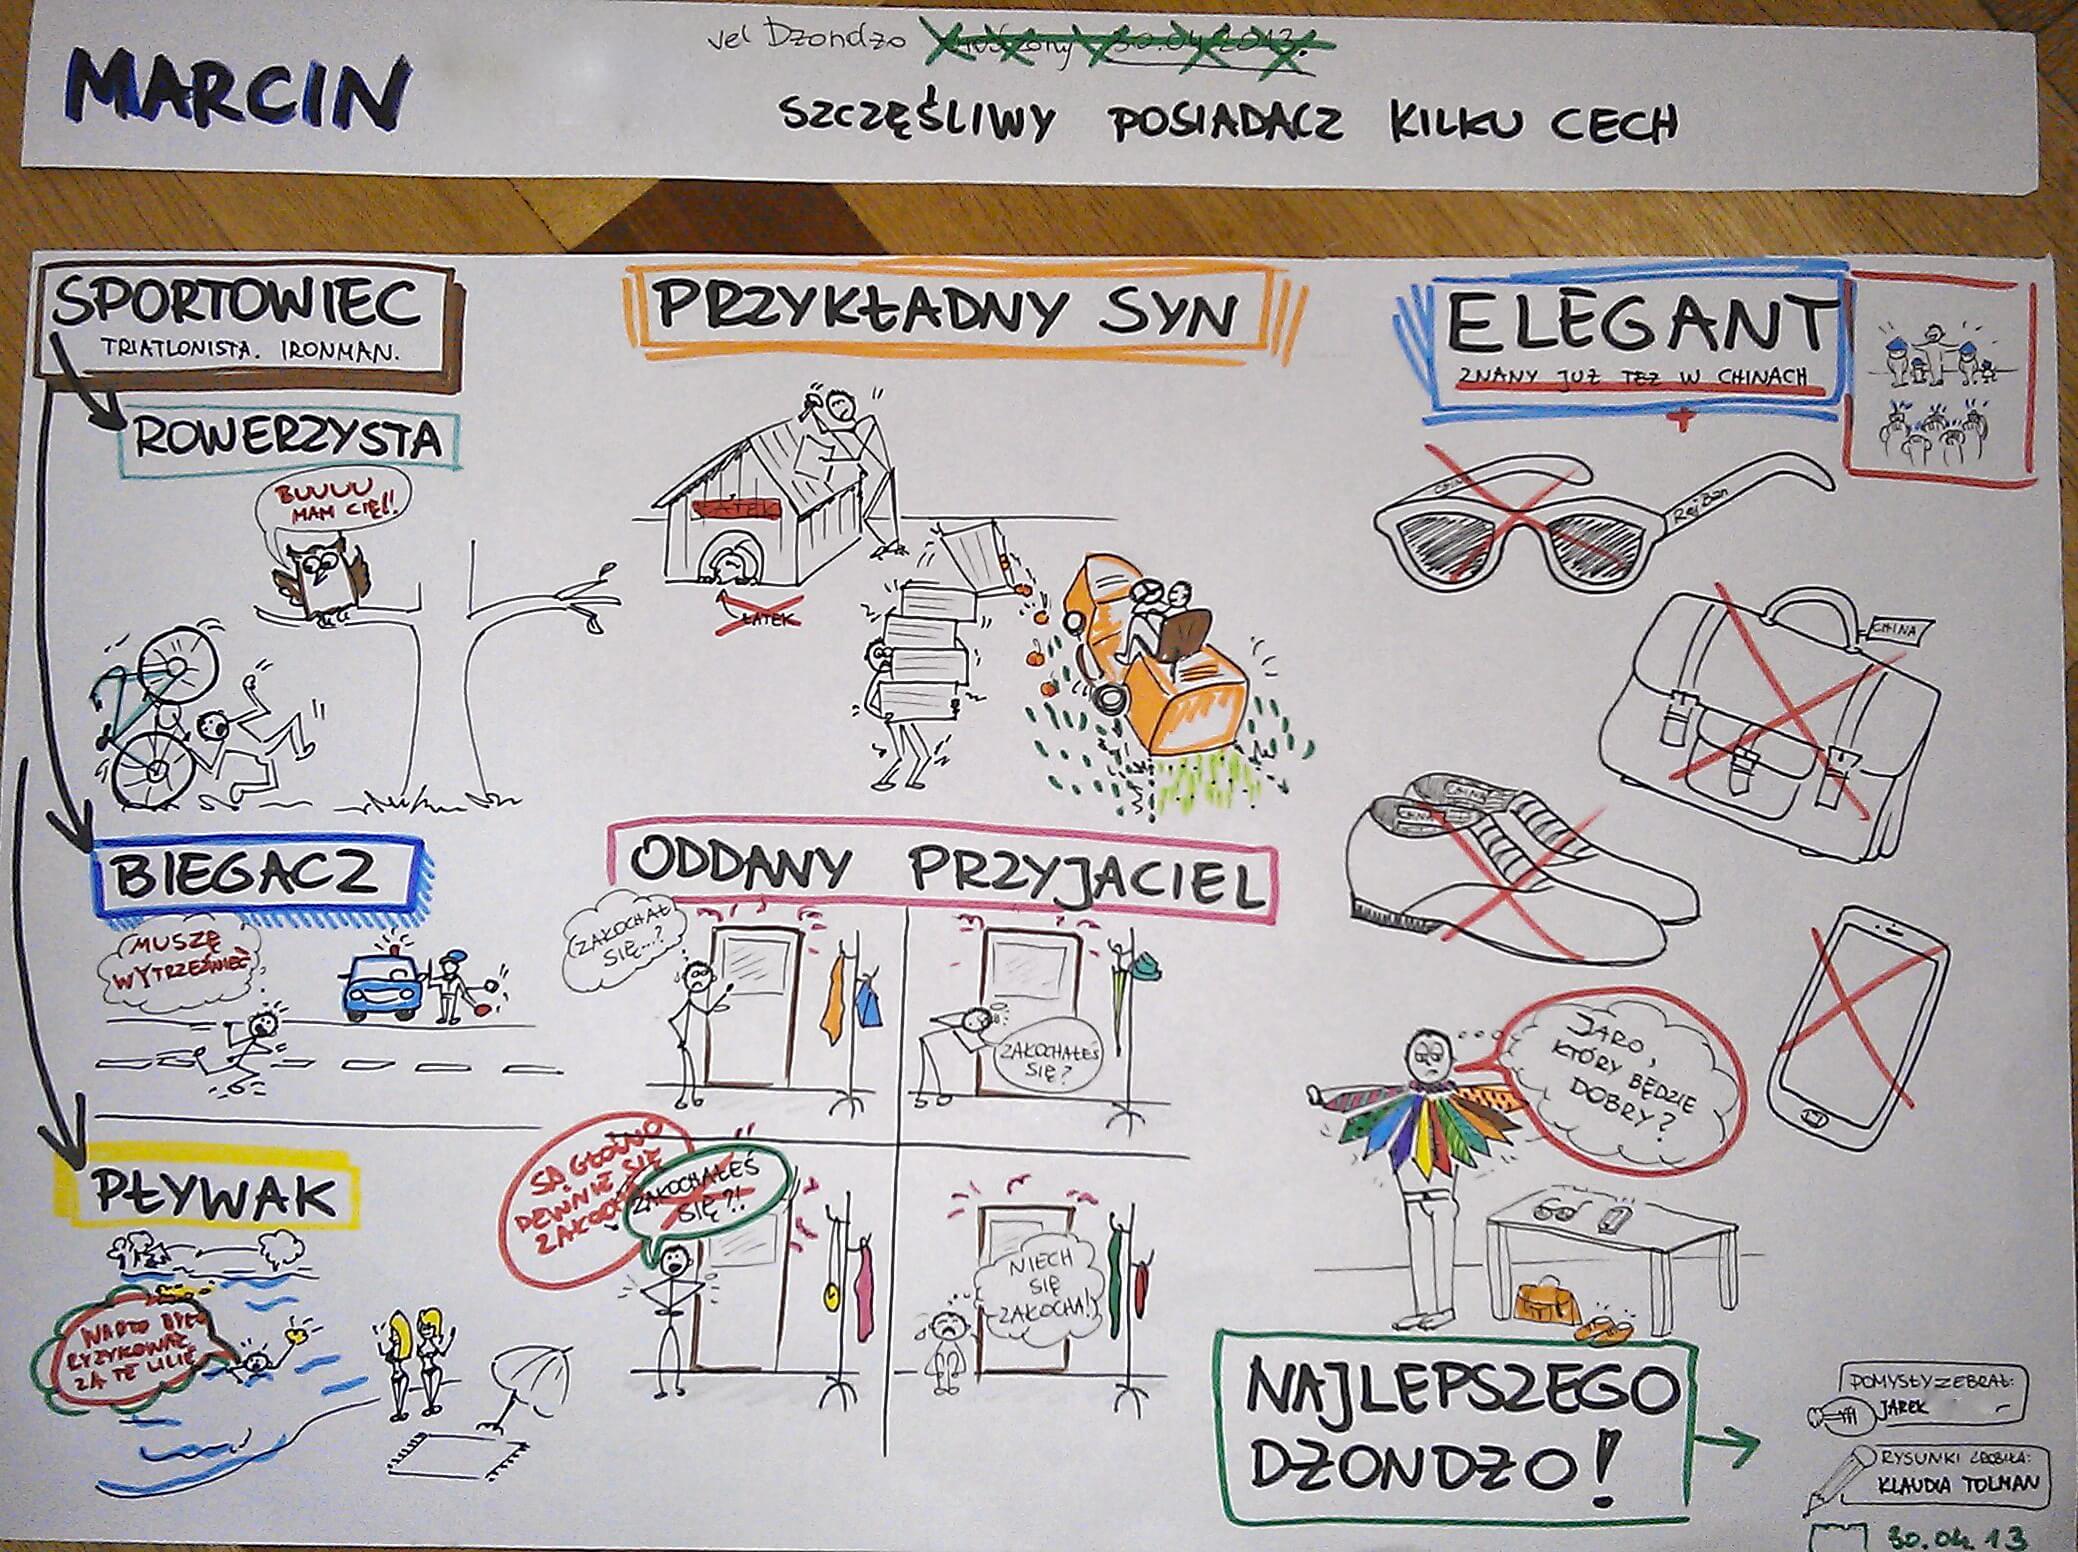 MARCIN
vel Dżondżo
SZCZĘŚLIWY POSIADACZ KILKU CECH
SPORTOWIEC
TRIATLONISTA. IRONMAN.
ROWERZYSTA
BUUUU
MAM CIĘ!!
BIEGACZ
MUSZĘ
WYTRZEŹWIEĆ
PŁYWAK
WARTO BYŁO
RYZYKOWAĆ
ZA TE LILIE
PRZYKŁADNY SYN
ŁATEK
ŁATEK
ODDANY PRZYJACIEL
ZAKOCHAŁ
SIĘ...?
ZAKOCHAŁEŚ
SIĘ?
SĄ GŁOŚNO
PEWNIE SIĘ
ZAKOCHAŁEŚ
SIĘ?!
NIECH
SIĘ
ZAKOCHA!
ELEGANT
ZNANY JUŻ TEŻ W CHINACH
+
Rej Ban
CHINA
CHINA
CHINA
JARO,
KTÓRY BĘDZIE
DOBRY?
NAJLEPSZEGO
DŻONDŻO!
POMYSŁY ZEBRAŁ:
JAREK
RYSUNKI ZROBIŁA:
KLAUDIA TOLMAN
30.04.13